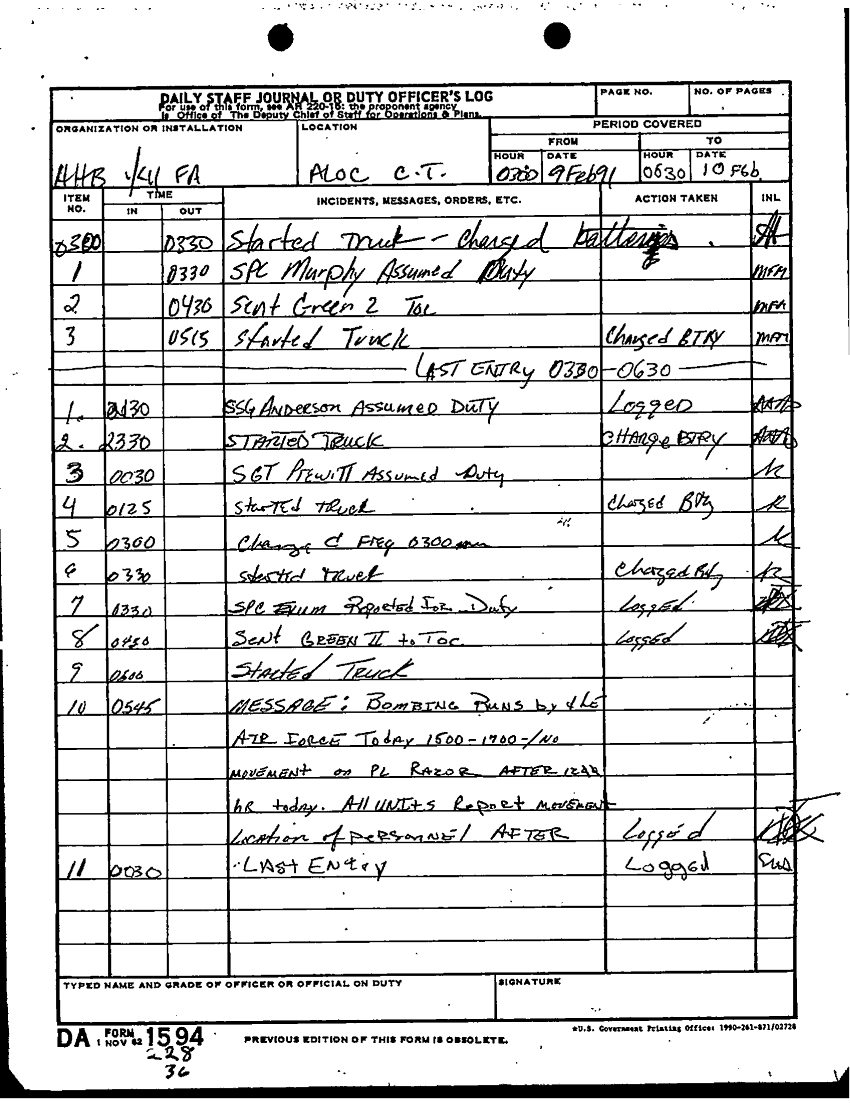 DAILY STAFF JOURNAL OR DUTY OFFICER'S LOG
For use of this form, see AR 220-15: the proponent agency
is Office of The Deputy Chief of Staff for Operations & Plans.
PAGE NO.
NO. OF PAGES
ORGANIZATION OR INSTALLATION
HHB 1/41 FA
LOCATION
ALOC C.T.
PERIOD COVERED
FROM
TO
HOUR
0300
DATE
9 Feb 91
HOUR
0630
DATE
10 Feb
ITEM NO.
TIME
IN
OUT
INCIDENTS, MESSAGES, ORDERS, ETC.
ACTION TAKEN
INL
0330 Started Truck - Charged batteries.
1 0330 SPC Murphy Assumed Duty MFM
2 0430 Sent Green 2 TOC MFM
3 0515 Started Truck Charged BTRY MFM
LAST ENTRY 0330-0630
1. SSG ANDERSON ASSUMED DUTY LOGGED
2. 2330 STARTED TRUCK CHARGE BTRY
3 0030 SGT Prewitt Assumed Duty
4 0125 Started truck Charged Btry
5 0300 Change of Freq 0300
6 0330 started truck Charged Btry
7 0330 SPC Reported For Duty Logged
8 0450 Sent GREEN II to TOC Logged
9 Started Truck
10 0545 MESSAGE: BOMBING RUNS by the
AIR FORCE Today 1500-1700-/NO
MOVEMENT on PL RAZOR AFTER
hR today. All UNITS Report MOVEMENT
Location of PERSONNEL AFTER Logged
11 0030 LAST ENtry Logged
TYPED NAME AND GRADE OF OFFICER OR OFFICIAL ON DUTY
SIGNATURE
DA FORM 1 NOV 62 1594
PREVIOUS EDITION OF THIS FORM IS OBSOLETE.
*U.S. Government Printing Office: 1990-261-871/02728
228
36